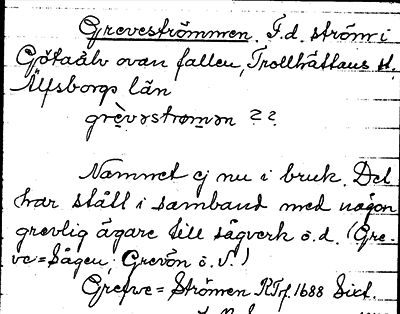 Greveströmmen. F.d. ström i
Götaälv ovan fallen, Trollhättans st.
Älfsborgs län
grèvəstrømən ? ?
Namnet ej nu i bruk. Det
har stått i samband med någon
grevlig ägare till sågverk o.d. (Gre-
ve=Sågen, Grevön o.s.v.)
Grefwe=Strömen RTrf. 1688 Sict.